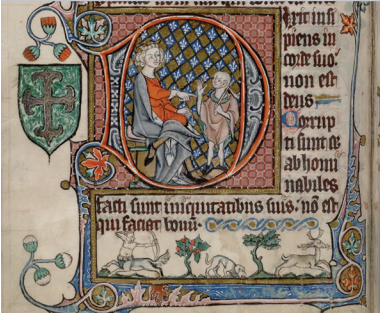 Dixit insi
piens in
corde suo:
non est
deus
Corrup
ti sunt et
abhomi
nabiles
facti sunt iniquitatibus suis: nō est
qui faciat bonū.